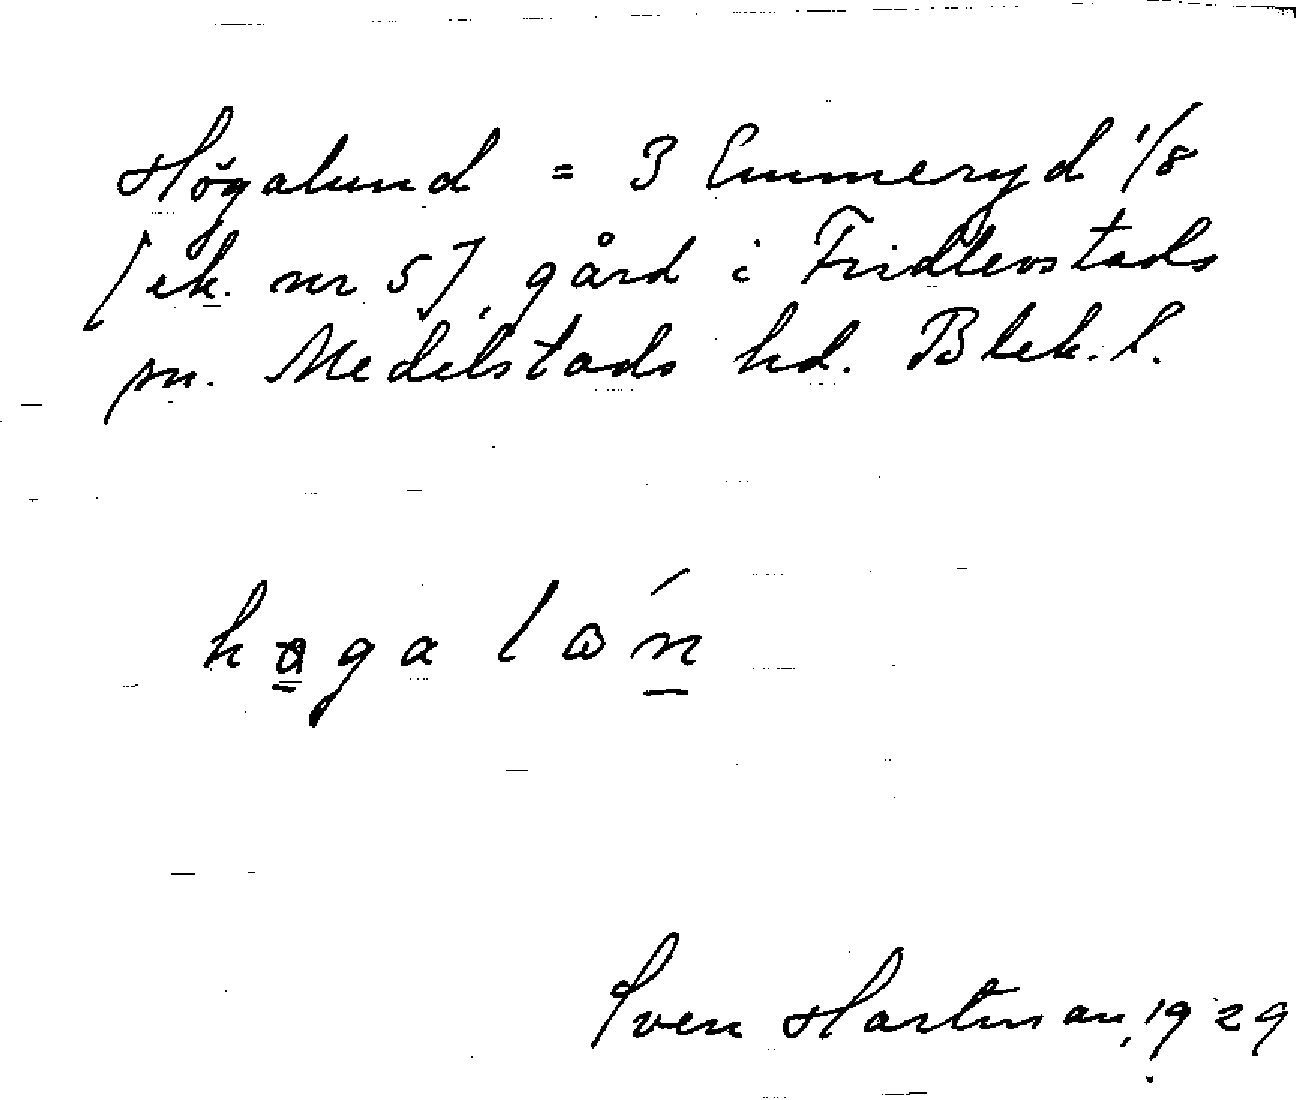 Högalund = 3 Emmeryd 1/8
[ek. nr 5], gård i Fridlevstads
sn. Medelstads hd. Blek. l.
Sven Hartman, 1929